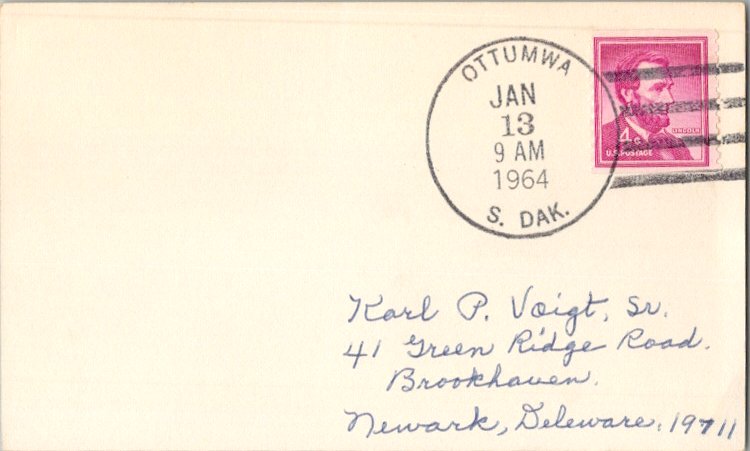 OTTUMWA
JAN
13
9 AM
1964
S. DAK.
4¢
LINCOLN
U.S. POSTAGE
Karl P. Voigt, Sr.
41 Green Ridge Road.
Brookhaven.
Newark, Deleware. 19711